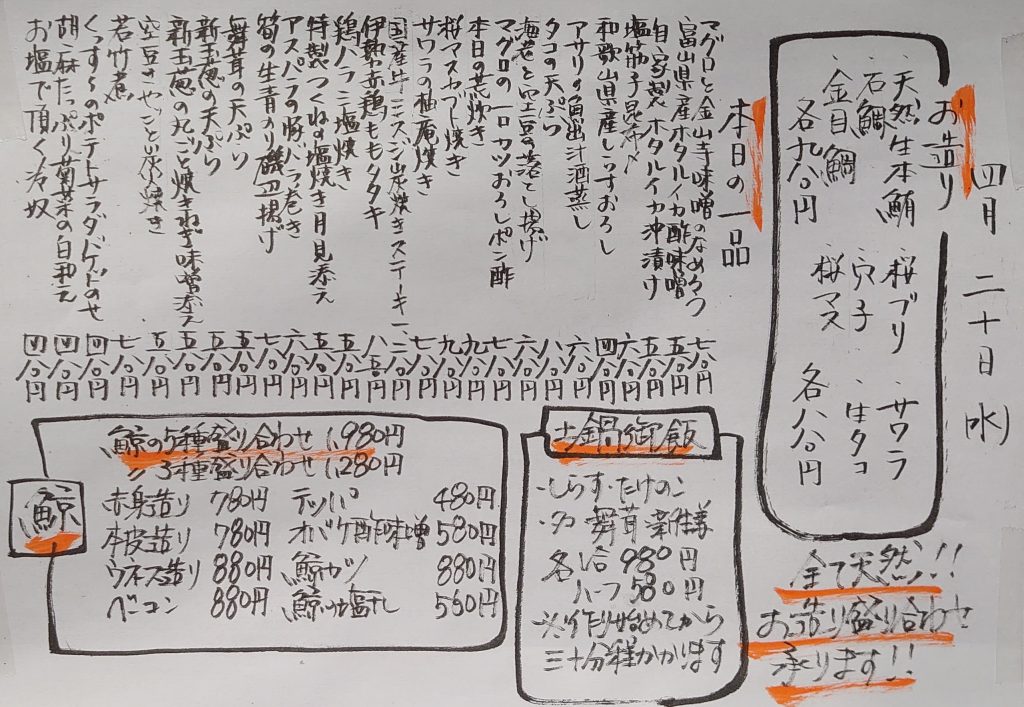 四月二十日(水)
お造り
・天然生本鮪
・石鯛
・金目鯛
各九八〇円
・桜ブリ
・穴子
・桜マス
・サワラ
・生タコ
各八八〇円
本日の一品
マグロと金山寺味噌のなめろう 七八〇円
富山県産ホタルイカ酢味噌 五八〇円
自家製ホタルイカ沖漬け 五八〇円
塩筋子昆布〆 六八〇円
和歌山県産しらすおろし 四八〇円
アサリの魚出汁酒蒸し 六八〇円
タコの天ぷら 八八〇円
海老と空豆の落とし揚げ 六八〇円
マグロの一口カツおろしポン酢 七八〇円
本日の荒炊き 九八〇円
桜マスカブト焼き 九八〇円
サワラの柚庵焼き 七八〇円
国産牛ニスジ炭焼きステーキ 一、二八〇円
伊勢赤鶏ももタタキ 八五〇円
鶏ハラミ塩焼き 五八〇円
特製つくねの塩焼き月見添え 五八〇円
アスパラの豚バラ巻き 六八〇円
筍の生青のり磯辺揚げ 六八〇円
舞茸の天ぷら 五八〇円
新玉葱の天ぷら 五八〇円
新玉葱の丸ごと焼きねぎ味噌添え 五八〇円
空豆さやごと炭焼き 五八〇円
若竹煮 七八〇円
くっすーのポテトサラダバゲットのせ 四八〇円
胡麻たっぷり菊菜の白和え 四八〇円
お塩で頂く冷奴 四八〇円
鯨
鯨の5種盛り合わせ 1,980円
〃 3種盛り合わせ 1,280円
赤身造り 780円
本皮造り 780円
ウネス造り 880円
ベーコン 880円
テッパ 480円
オバケ酢味噌 580円
鯨カツ 880円
鯨の塩干し 560円
土鍋御飯
・しらす・たけのこ
・タコ・舞茸・新生姜
各1合 980円
ハーフ 580円
※作り始めてから
三十分程かかります
全て天然!!
お造り盛り合わせ
承ります!!